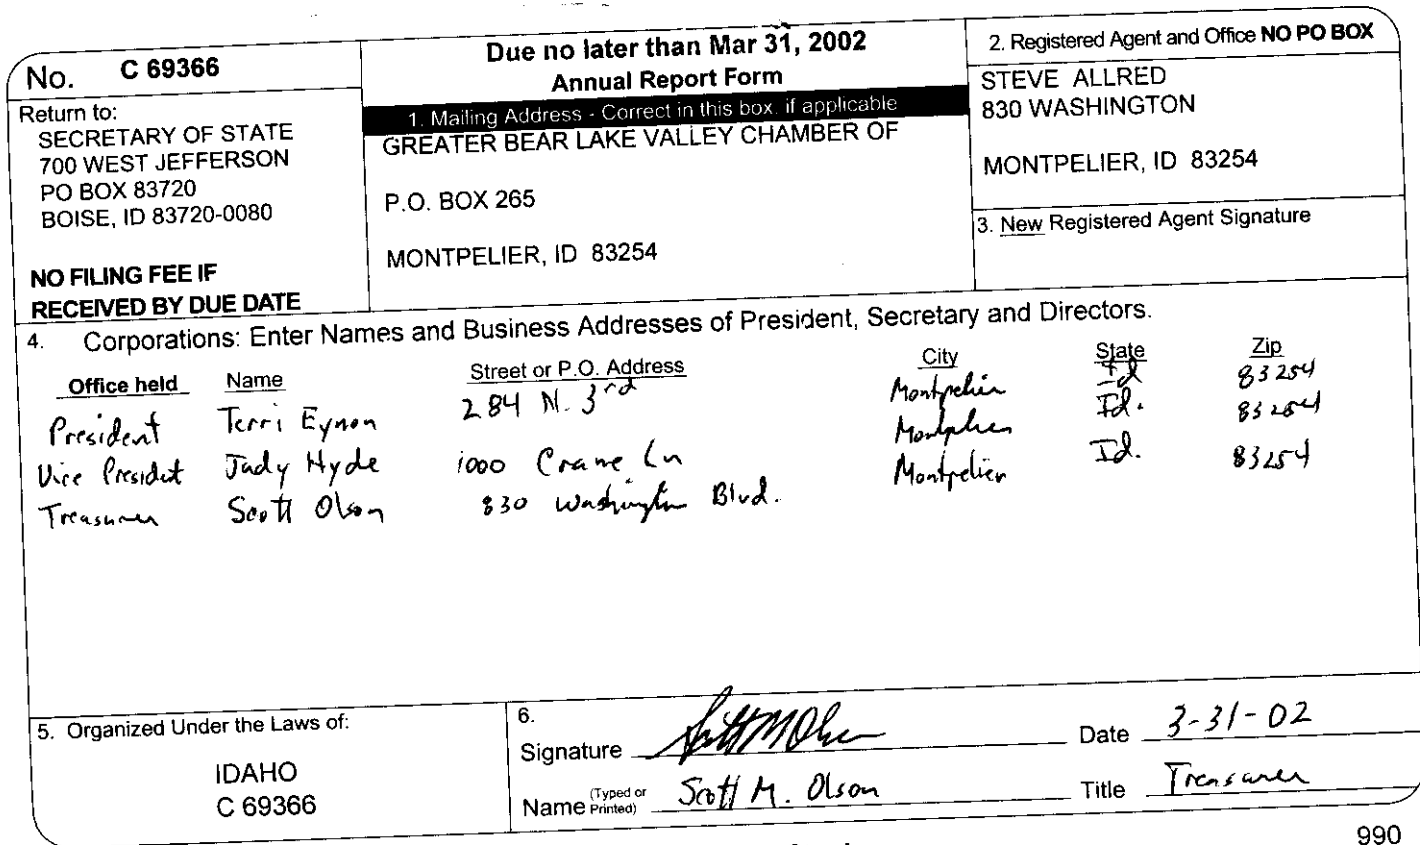 No. C 69366
Return to:
SECRETARY OF STATE
700 WEST JEFFERSON
PO BOX 83720
BOISE, ID 83720-0080
NO FILING FEE IF
RECEIVED BY DUE DATE
Due no later than Mar 31, 2002
Annual Report Form
1. Mailing Address - Correct in this box, if applicable
GREATER BEAR LAKE VALLEY CHAMBER OF
P.O. BOX 265
MONTPELIER, ID 83254
2. Registered Agent and Office NO PO BOX
STEVE ALLRED
830 WASHINGTON
MONTPELIER, ID 83254
3. New Registered Agent Signature
4. Corporations: Enter Names and Business Addresses of President, Secretary and Directors.
Office held Name Street or P.O. Address City State Zip
President Terri Eynon 284 N. 3rd Montpelier Id 83254
Vice President Judy Hyde 1000 Crane Ln Montpelier Id. 83254
Treasurer Scott Olson 830 Washington Blvd. Montpelier Id. 83254
5. Organized Under the Laws of:
IDAHO
C 69366
6.
Signature Scott M Olson Date 3-31-02
Name (Typed or Printed) Scott M. Olson Title Treasurer
990